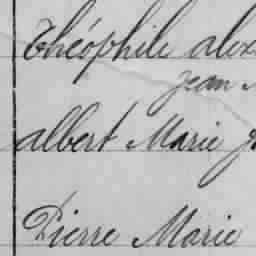 Théophile alex
Jean M
albert Marie J
Pierre Marie